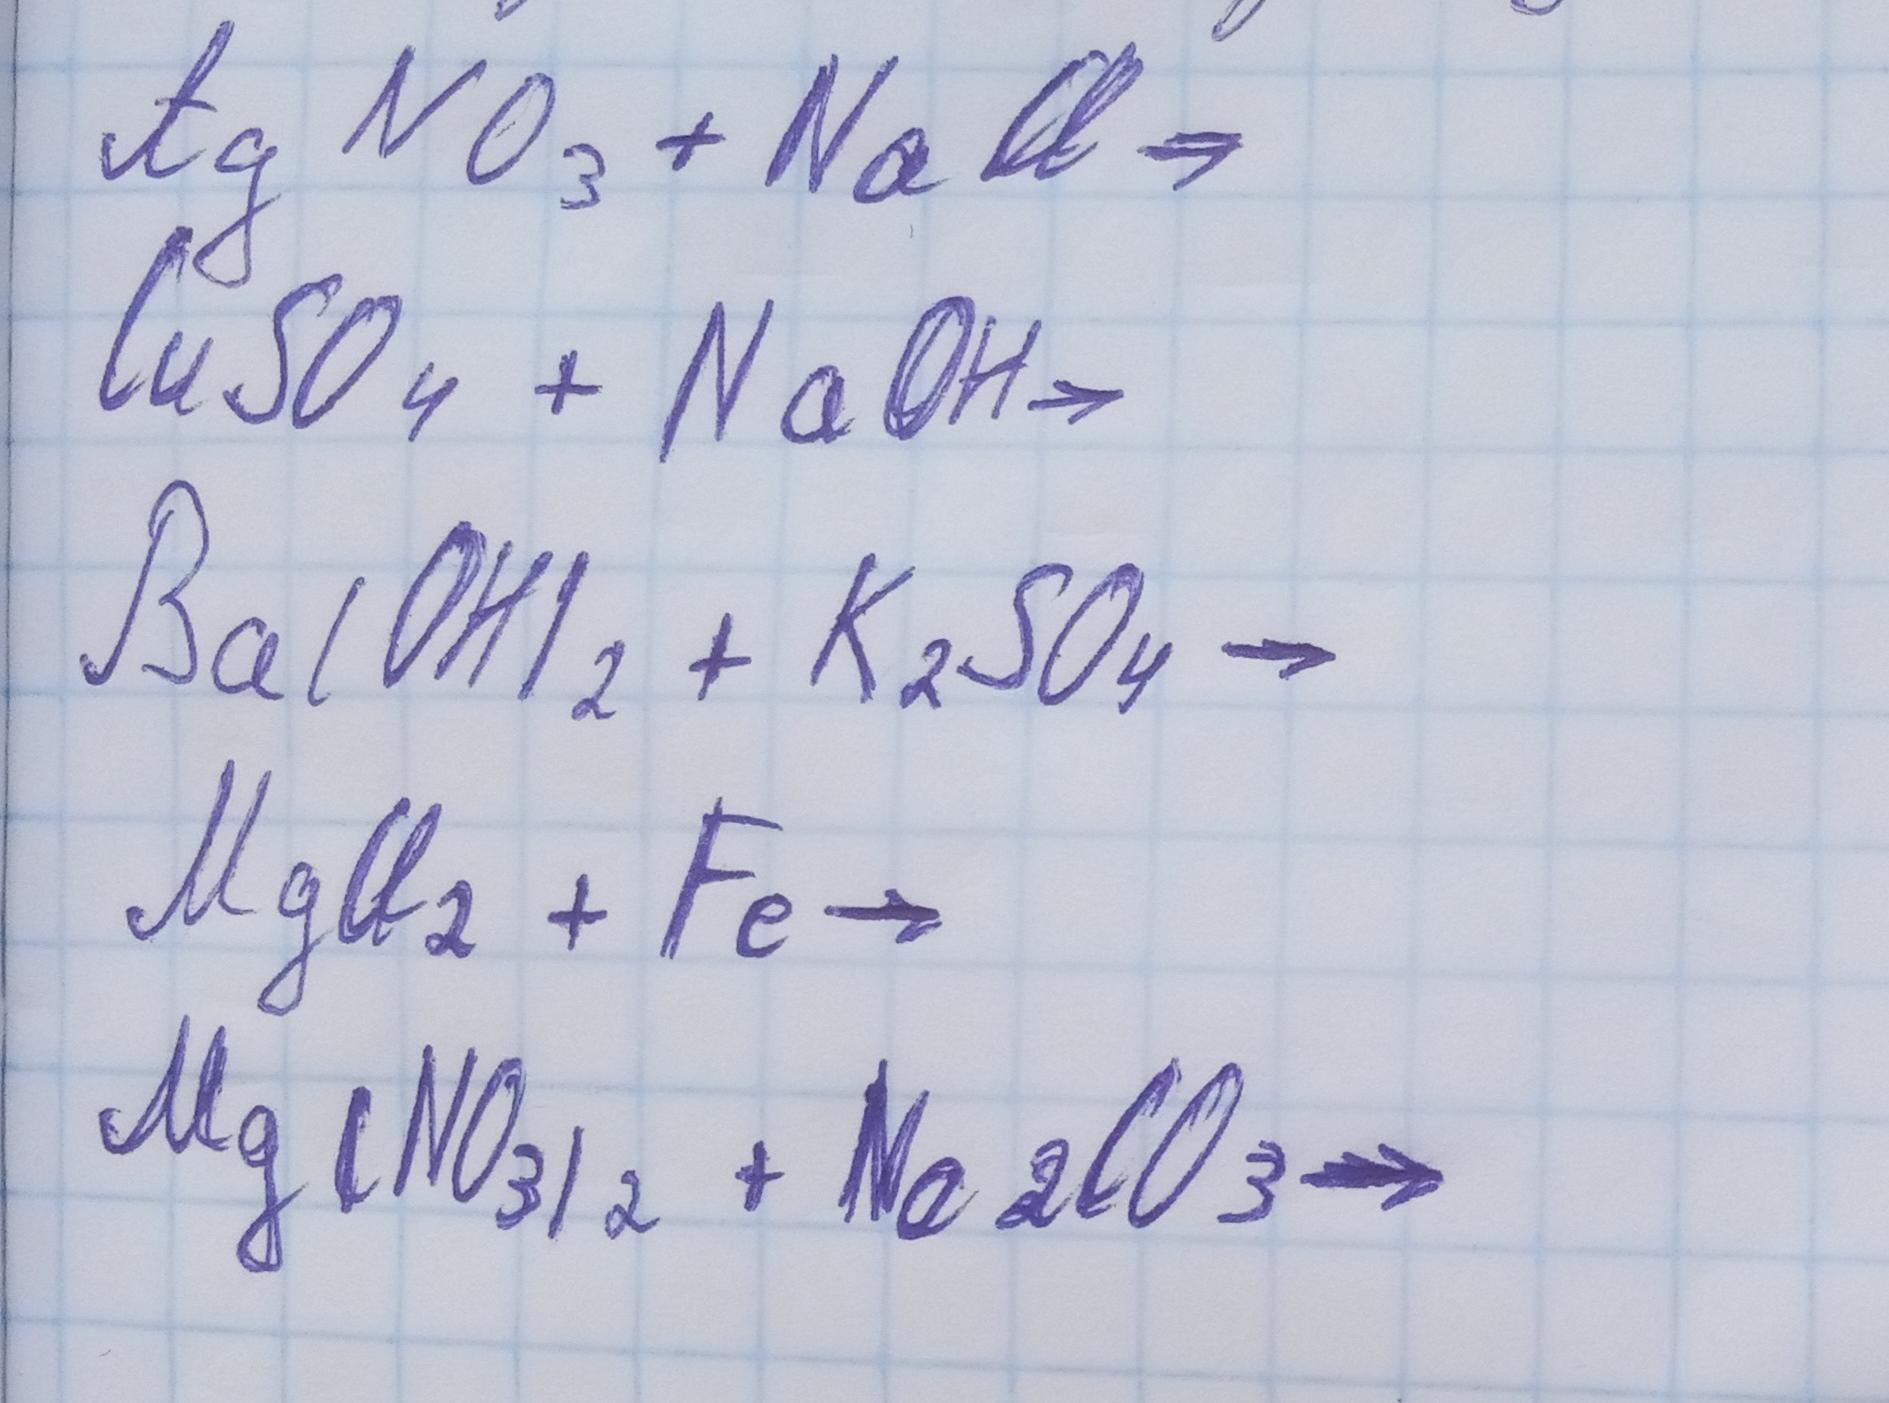 AgNO₃ + NaCl →
CuSO₄ + NaOH →
Ba(OH)₂ + K₂SO₄ →
MgCl₂ + Fe →
Mg(NO₃)₂ + Na₂CO₃ →